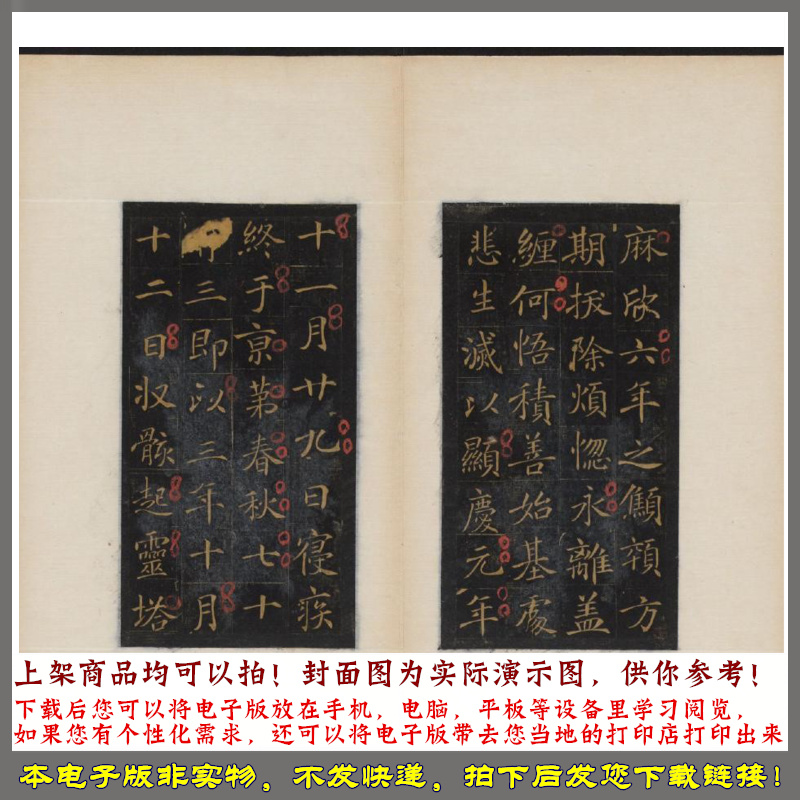 麻欣六年之頟方
期拔除煩惚永離盖
纏何悟積善始基處
悲生滅以顯慶元年
十一月廿九日寑疾
終于亰第春秋七十
三即以三年十月
十二日収骸起靈塔
上架商品均可以拍！封面图为实际演示图，供你参考！
下载后您可以将电子版放在手机，电脑，平板等设备里学习阅览，
如果您有个性化需求，还可以将电子版带去您当地的打印店打印出来
本电子版非实物，不发快递，拍下后发您下载链接！